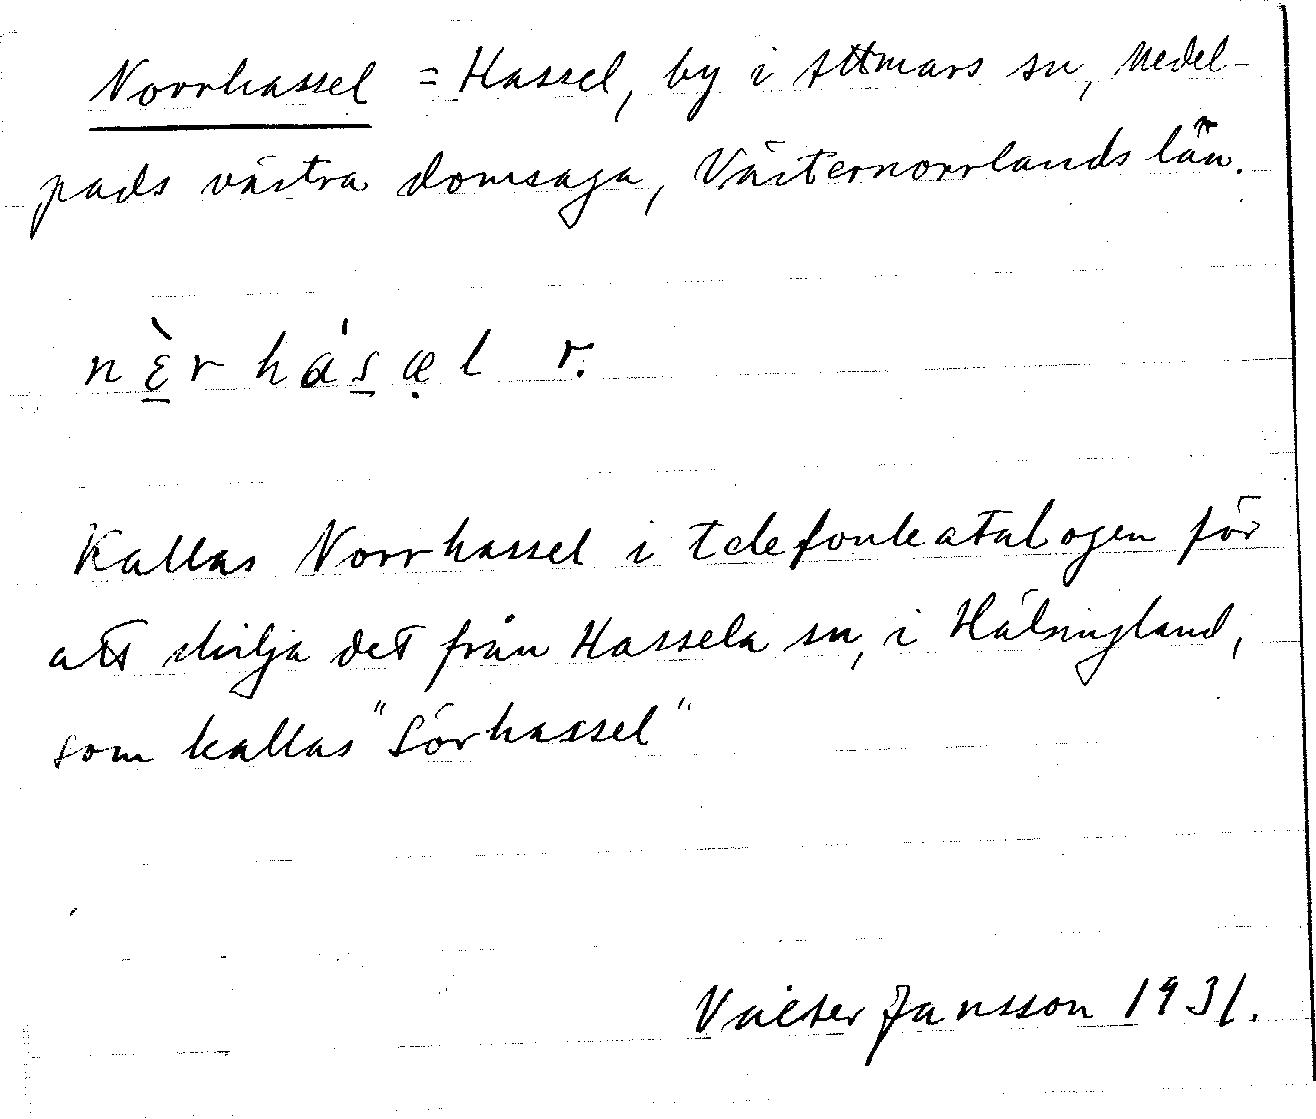 Norrhassel = Hassel, by i Attmars sn, Medel-
pads västra domsaga, Västernorrlands län.
nɛ̀r hásæl r.
Kallas Norrhassel i telefonkatalogen för
att skilja det från Hassela sn, i Hälsingland,
som kallas "Sörhassel"
Valter Jansson 1931.